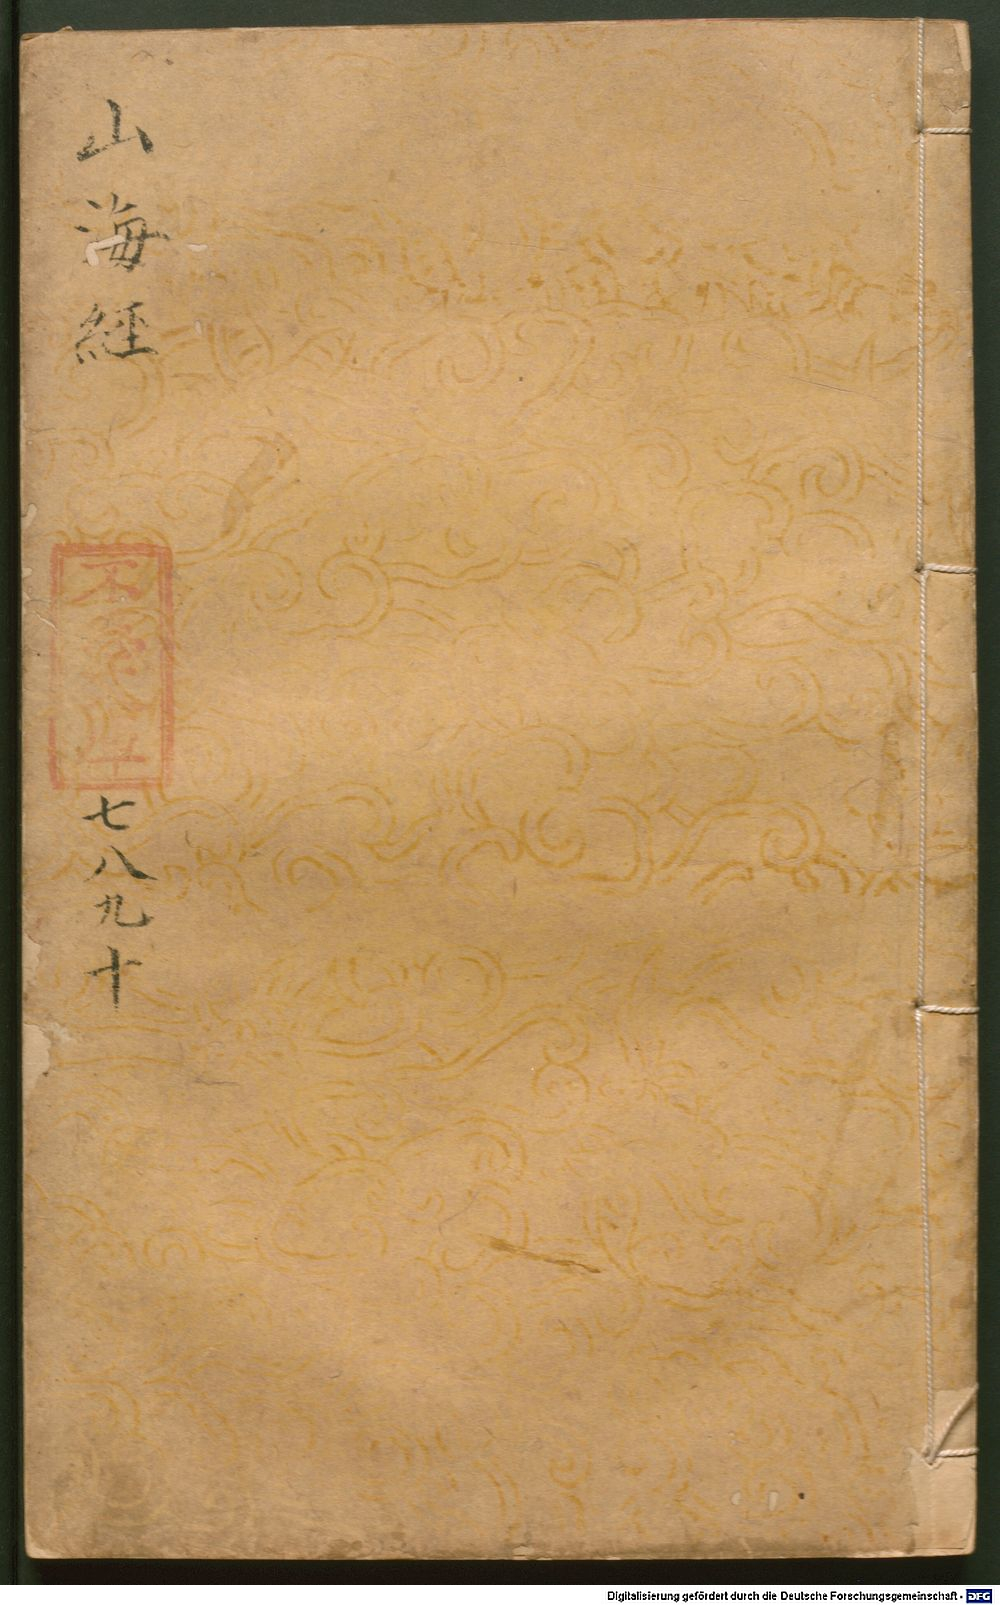 山海經
七八九十
Digitalisierung gefördert durch die Deutsche Forschungsgemeinschaft - DFG